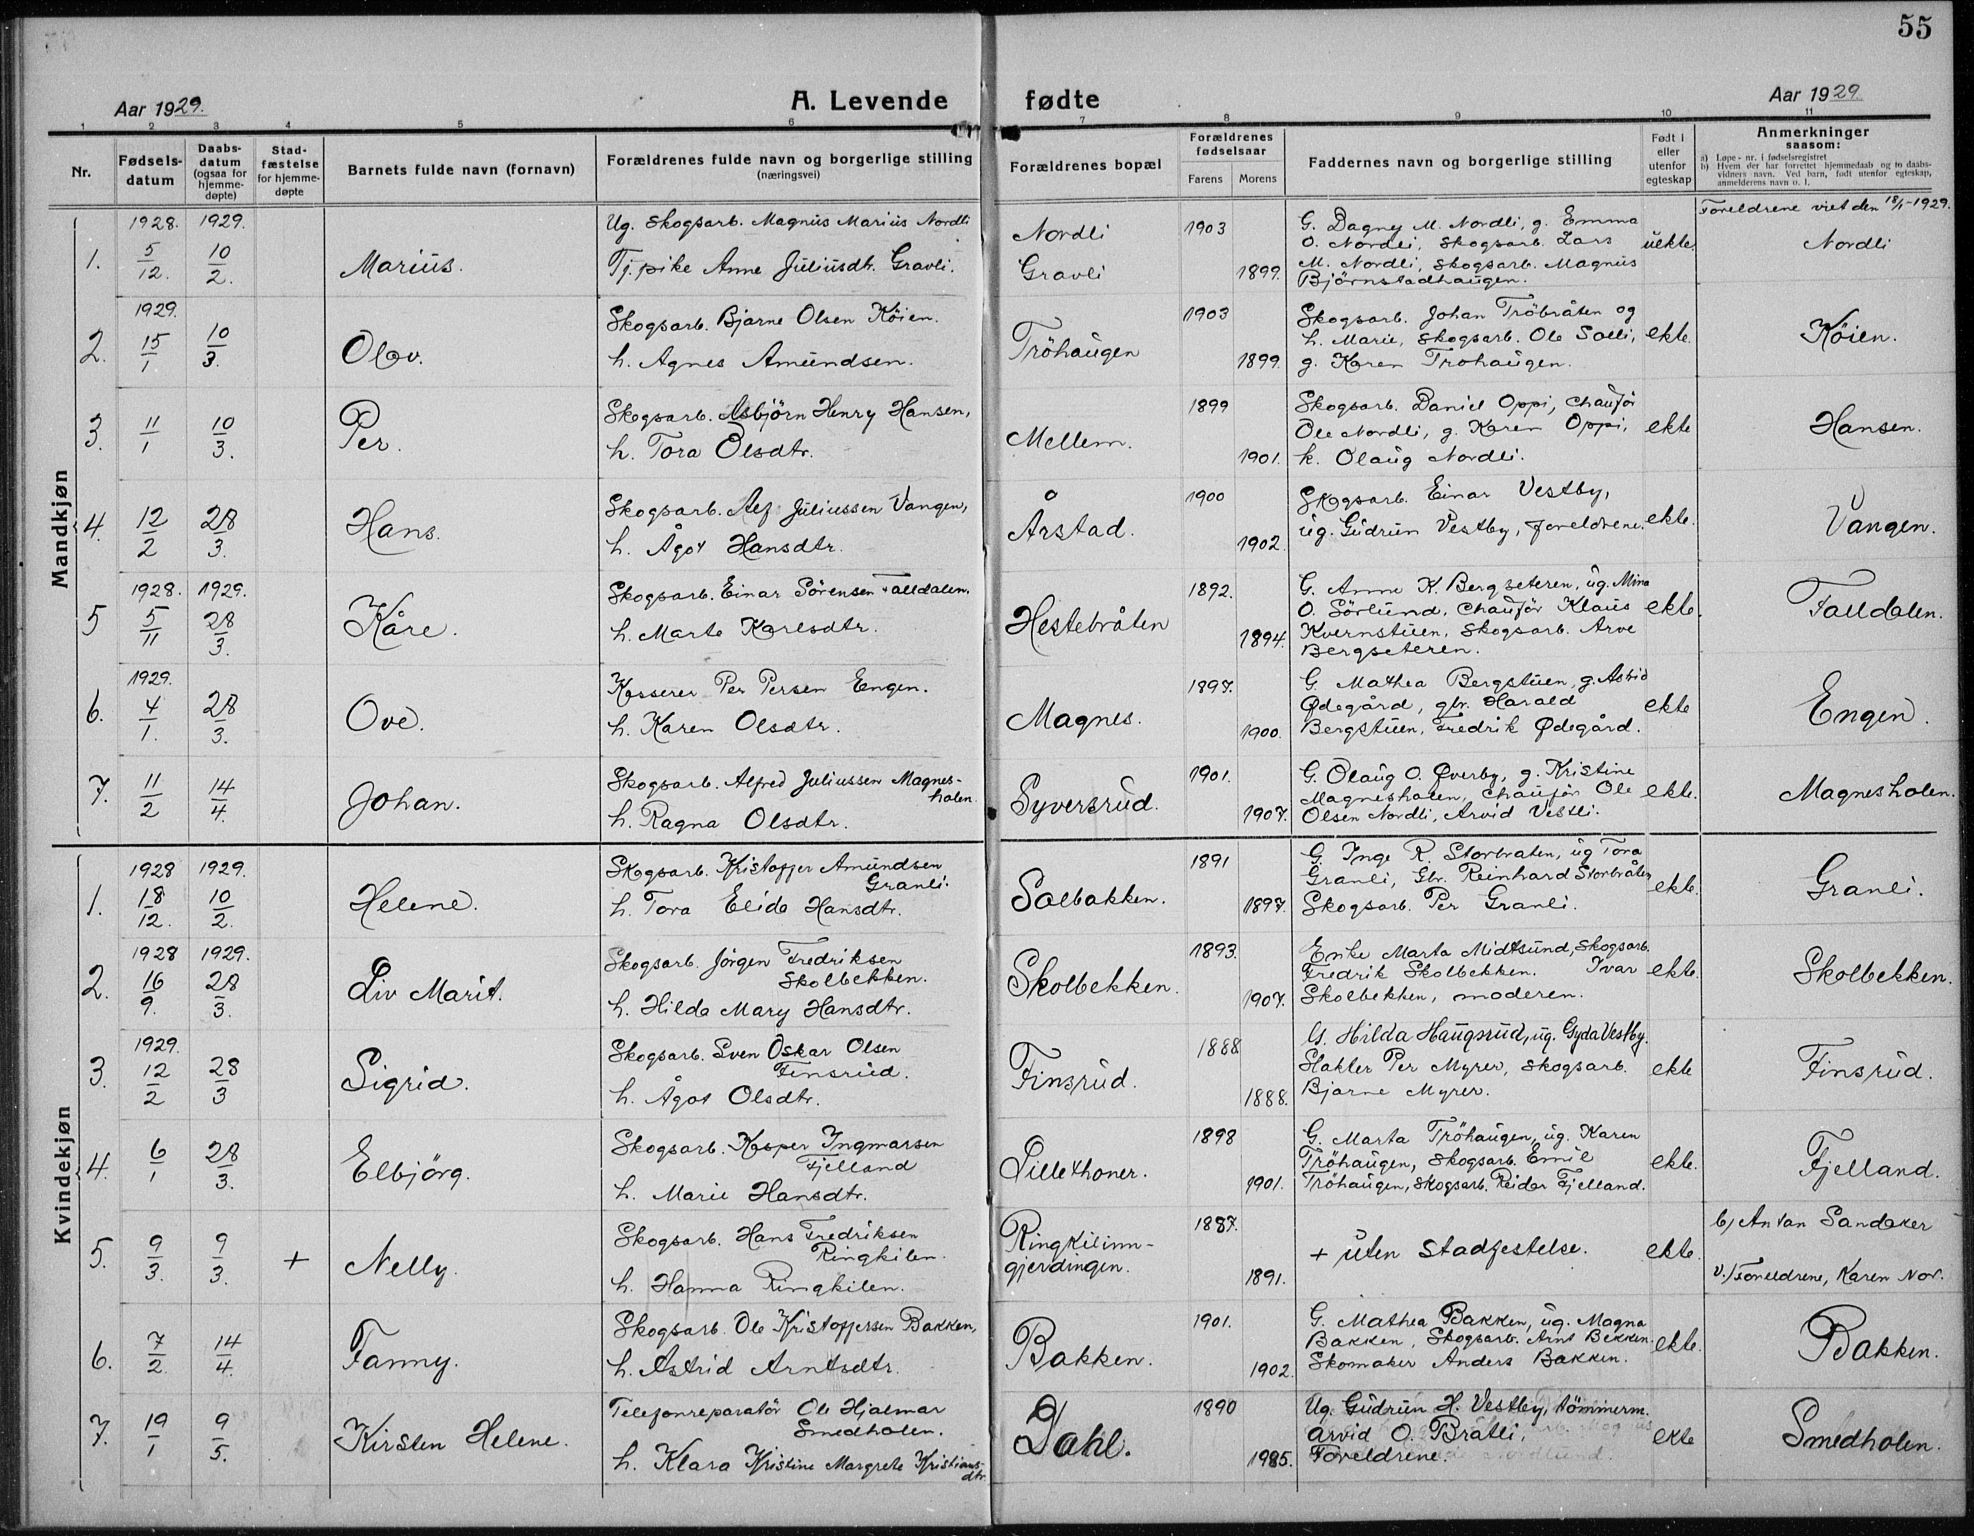 55
Aar 1929. A. Levende fødte Aar 1929.
1 2 3 4 5 6 7 8 9 10 11
Nr.
Fødsels-
datum
Daabs-
datum
(ogsaa for
hjemme-
døpte)
Stad-
fæstelse
for hjemme-
døpte
Barnets fulde navn (fornavn)
Forældrenes fulde navn og borgerlige stilling
(næringsvei)
Forældrenes bopæl
Forældrenes
fødselsaar
Farens Morens
Faddernes navn og borgerlige stilling
Født i
eller
utenfor
egteskap
Anmerkninger
saasom:
a) Løpe-nr. i fødselsregistret
b) Hvem der har forrettet hjemmedaab og to daabs-
vidners navn. Ved barn, født utenfor egteskap,
anmelderens navn o. l.
Mandkjøn
1. 1928. 5/12. 1929. 10/2. Marius.
Ug. Skogsarb. Magnus Marius Nordli
Tj.pike Anne Juliusdt. Gravli.
Nordli
Gravli
1903
1899.
G. Dagny M. Nordli, g. Emma
O. Nordli, Skogsarb. Lars
M. Nordli, Skogsarb. Magnus
Bjørnstadhaugen.
uekte.
Foreldrene viet den 18/1-1929.
Nordli
2. 1929. 15/1 10/3. Olov.
Skogsarb. Bjarne Olsen Køien.
h. Agnes Amundsen.
Tröhaugen
1903
1899.
Skogsarb. Johan Tröbråten og
h. Marie, Skogsarb. Ole Solli,
g. Karen Trohaugen.
ekte.
Køien.
3. 11/1 10/3. Per.
Skogsarb. Asbjörn Henry Hansen,
h. Tora Olsdtr.
Mellem.
1899
1901.
Skogsarb. Daniel Oppi, chauför
Ole Nordli, g. Karen Oppi,
k. Olaug Nordli.
ekte
Hansen.
4. 12/2 28/3. Hans.
Skogsarb. Alf Juliussen Vangen,
h. Ågot Hansdtr.
Årstad.
1900
1902.
Skogsarb. Einar Vestby,
ug. Gudrun Vestby, foreldrene.
ekte.
Vangen.
5 1928. 5/11 1929. 28/3. Kåre.
Skogsarb. Einar Sörensen Falldalen.
h. Marte Karlsdtr.
Hestebråten
1892.
1894.
G. Anne K. Bergseteren, ug. Mina
O. Sörlund, Chauför Klaus
Kvernstuen, Skogsarb. Arve
Bergseteren.
ekte.
Falldalen.
6. 1929. 4/1. 28/3. Ove.
Kasserer Per Persen Engen.
h. Karen Olsdtr.
Magnes.
1897.
1900.
G. Mathea Bergstuen, g. Astrid
Ødegård, gbr. Harald
Bergstuen, Fredrik Ødegård.
ekte
Engen.
7. 11/2 14/4. Johan.
Skogsarb. Alfred Juliussen Magnes-
holen.
h. Ragna Olsdtr.
Syversrud.
1901.
1907.
G. Olaug O. Øverby, g. Kristine
Magnesholen, chauför Ole
Olsen Nordli, Arvid Vestli.
ekte.
Magnesholen.
Kvindekjøn
1. 1928 18/12. 1929. 10/2. Helene.
Skogsarb. Kristoffer Amundsen
Granli.
h. Tora Elida Hansdtr.
Solbakken.
1891
1897.
G. Inge R. Storbraten, ug Tora
Granli, Gbr. Reinhard Storbråten
Skogsarb. Per Granli.
ekte.
Granli.
2. 1928 16/9. 1929. 28/3. Liv Marit.
Skogsarb. Jörgen Fredriksen
Skolbekken.
h. Hilda Mary Hansdtr.
Skolbekken.
1893.
1907.
Enke Marta Midtsund, Skogsarb.
Fredrik Skolbekken. Ivar
Skolbekken, moderen.
ekte.
Skolbekken.
3. 1929. 12/2 28/3 Sigrid.
Skogsarb. Sven Oskar Olsen
Finsrud.
h. Ågot Olsdtr.
Finsrud.
1888
1888.
G. Hilda Haugsrud, ug. Gyda Vestby.
Slakter Per Myrer, Skogsarb.
Bjarne Myrer.
ekte
Finsrud.
4. 6/1 28/3. Elbjörg.
Skogsarb. Kasper Ingmarsen
Fjelland
h. Marie Hansdtr.
Lillethoner.
1898
1901.
G. Marta Tröhaugen, ug. Karen
Tröhaugen, Skogsarb. Emil
Tröhaugen, Skogsarb. Reidar Fjelland.
ekte.
Fjelland.
5. 9/3. 9/3. + Nelly.
Skogsarb. Hans Fredriksen
Ringkilen.
h. Hanna Ringkilen.
Ringkilinn-
gjerdingen.
1887.
1891.
+ uten Stadfestelse.
ekte.
b/ Antan Sandaker
v./ Foreldrene, Karen Nor.
6. 7/2. 14/4. Fanny.
Skogsarb. Ole Kristoffersen Bakken,
h. Astrid Arntsdtr.
Bakken.
1901.
1902.
G. Mathea Bakken, ug. Magna
Bakken, Skogsarb. Arnt Bekken.
Skomaker Anders Bakken.
ekte.
Bakken.
7. 19/1 9/5. Kirsten Helene.
Telefonreparatör Ole Hjalmar
Smedholen.
h. Klara Kristine Margrete Kristians-
dtr.
Dahl.
1890
1905.
Ug. Gudrun H. Vestby, tömmerm.
Arvid O. Bråtli,
Foreldrene.
ekte
Smedholen.